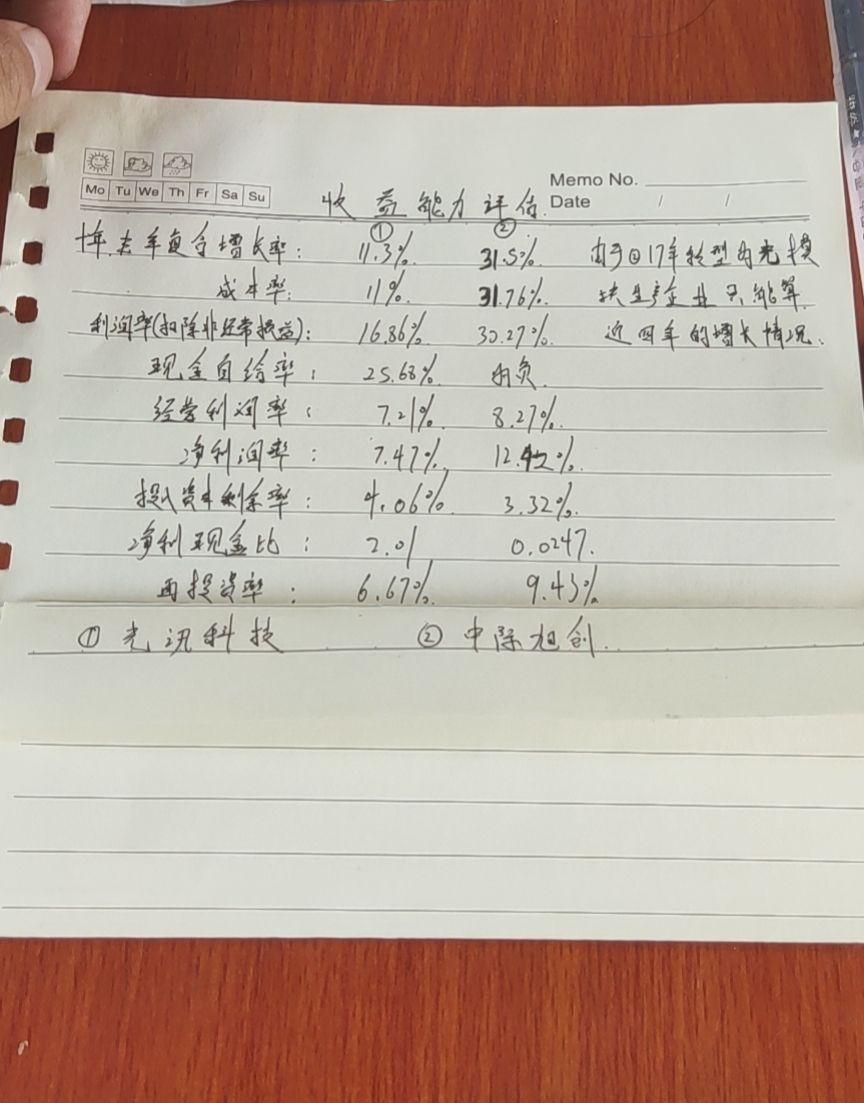 Mo Tu We Th Fr Sa Su
Memo No.
Date / /
收益能力评估.
① ②
十年去年复合增长率: 11.3% 31.5% 由于②17年转型为光模
成本率: 11% 31.76% 块生产企业只能算
利润率(扣除非经常损益): 16.86% 30.27% 近四年的增长情况.
现金自给率: 25.68% 为负.
经营利润率: 7.21% 8.27%.
净利润率: 7.47% 12.42%.
投入资本剩余率: 4.06% 3.32%.
净利现金比: 2.01 0.0247.
再投资率: 6.67% 9.43%
① 光讯科技 ② 中际旭创.